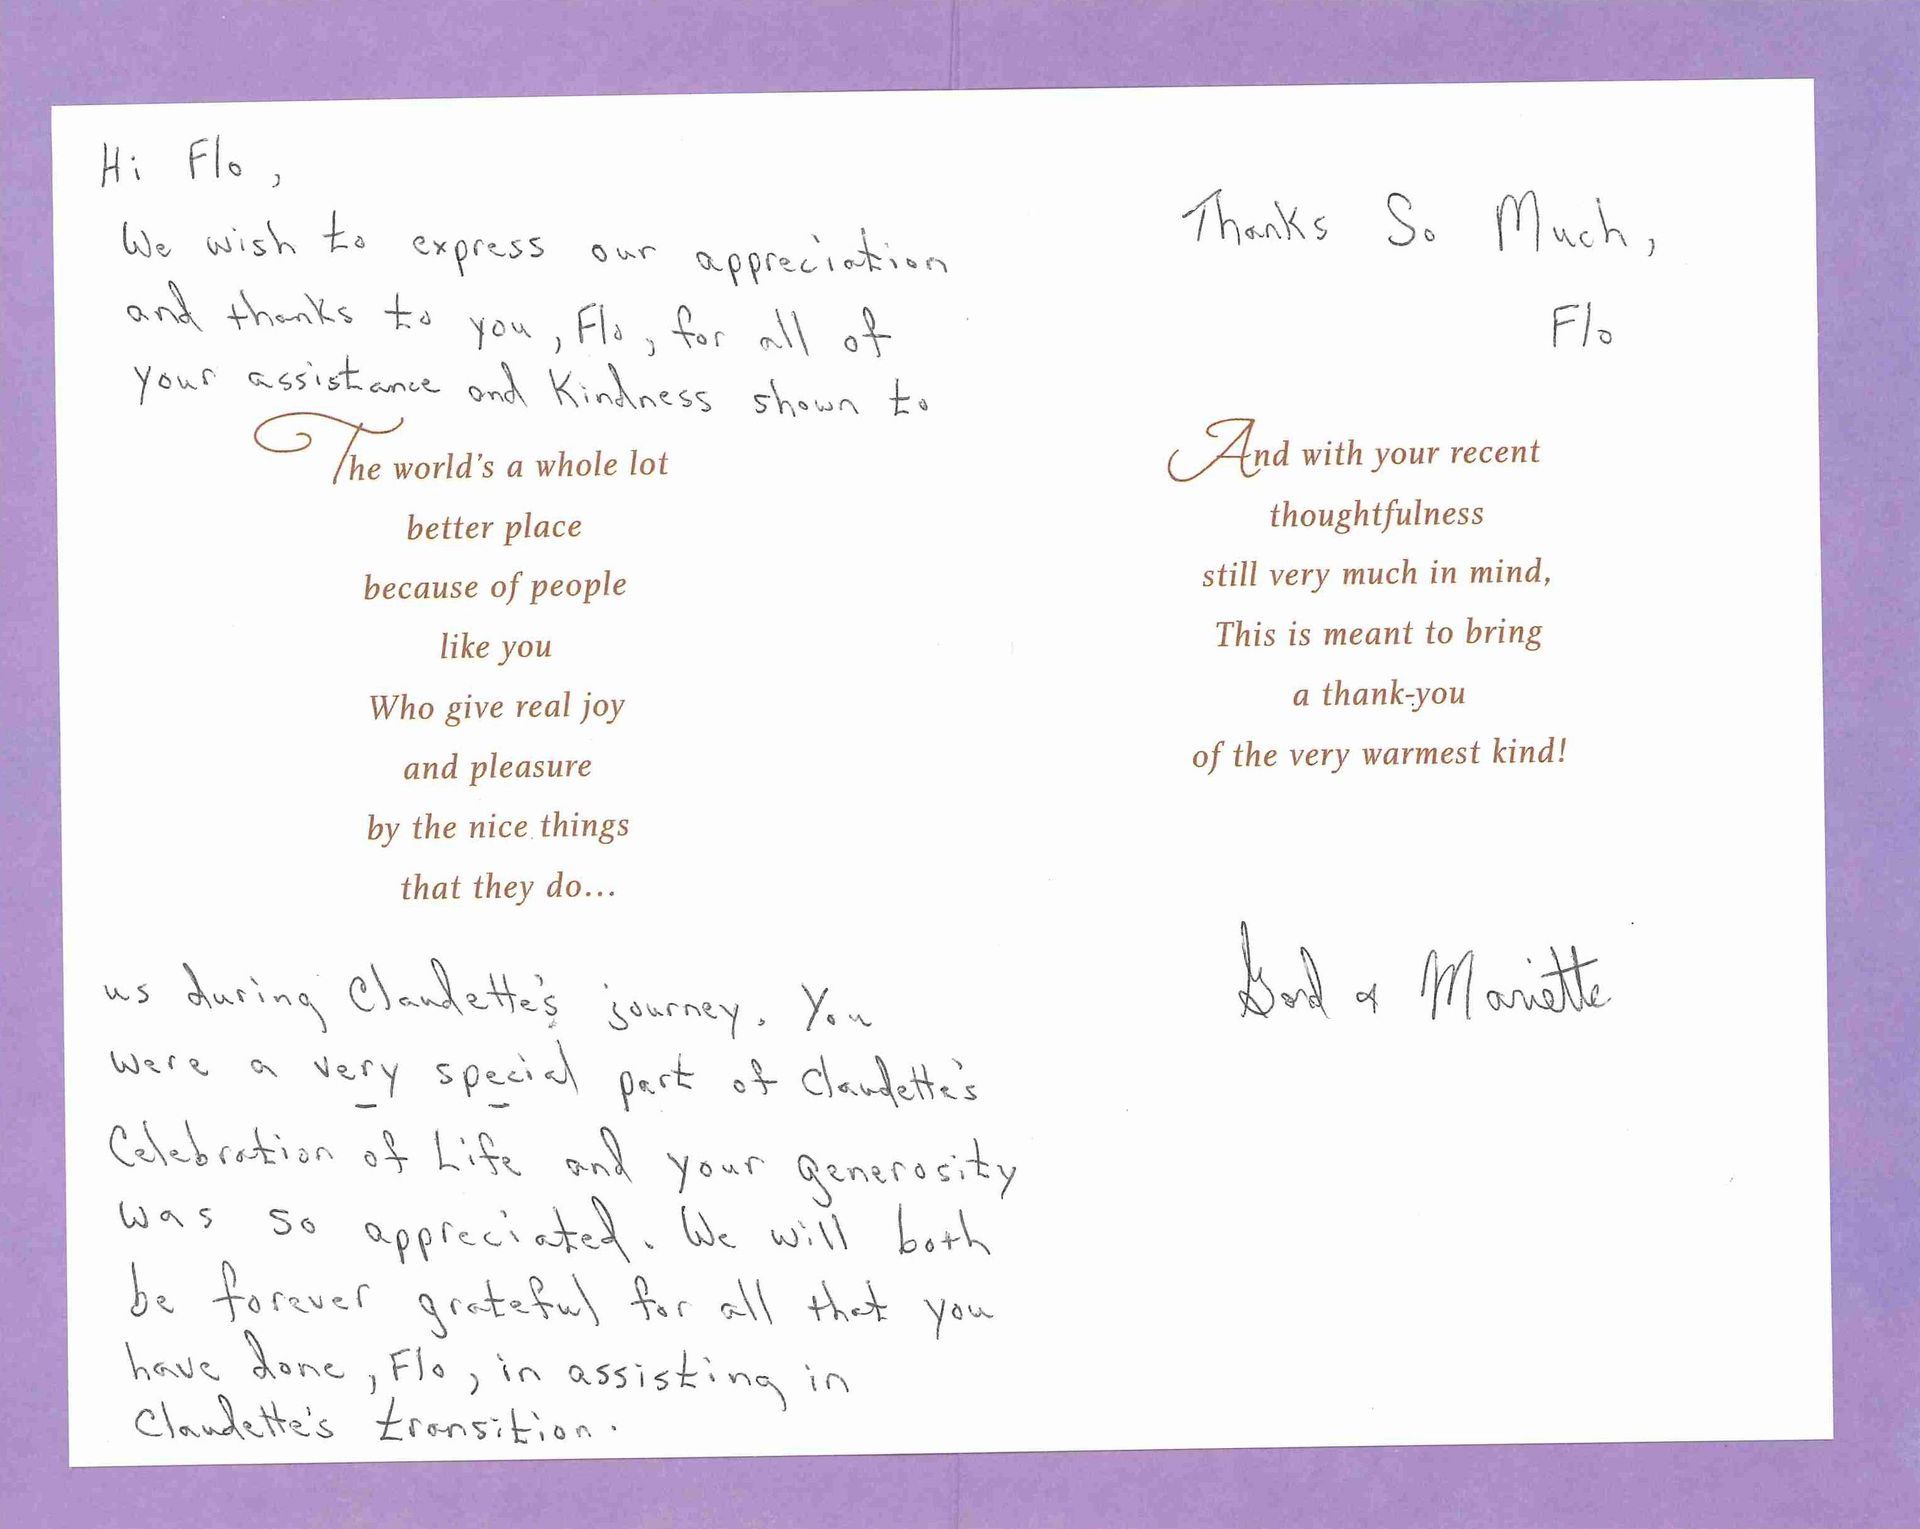 Hi Flo,
We wish to express our appreciation
and thanks to you, Flo, for all of
your assistance and Kindness shown to
The world's a whole lot
better place
because of people
like you
Who give real joy
and pleasure
by the nice things
that they do...
us during Claudette's journey. You
were a very special part of Claudette's
Celebration of Life and your generosity
was so appreciated. We will both
be forever grateful for all that you
have done, Flo, in assisting in
Claudette's transition.
Thanks So Much,
Flo
And with your recent
thoughtfulness
still very much in mind,
This is meant to bring
a thank-you
of the very warmest kind!
Gord & Mariette